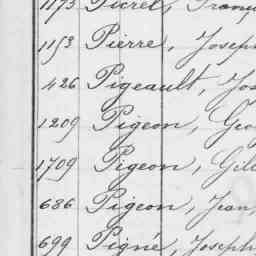 1173 Picret, Franç
1153 Pierre, Joseph
426 Pigeault, Jos
1209 Pigeon, Geo
1709 Pigeon, Gil
686 Pigeon, Jean
699 Pigné, Joseph